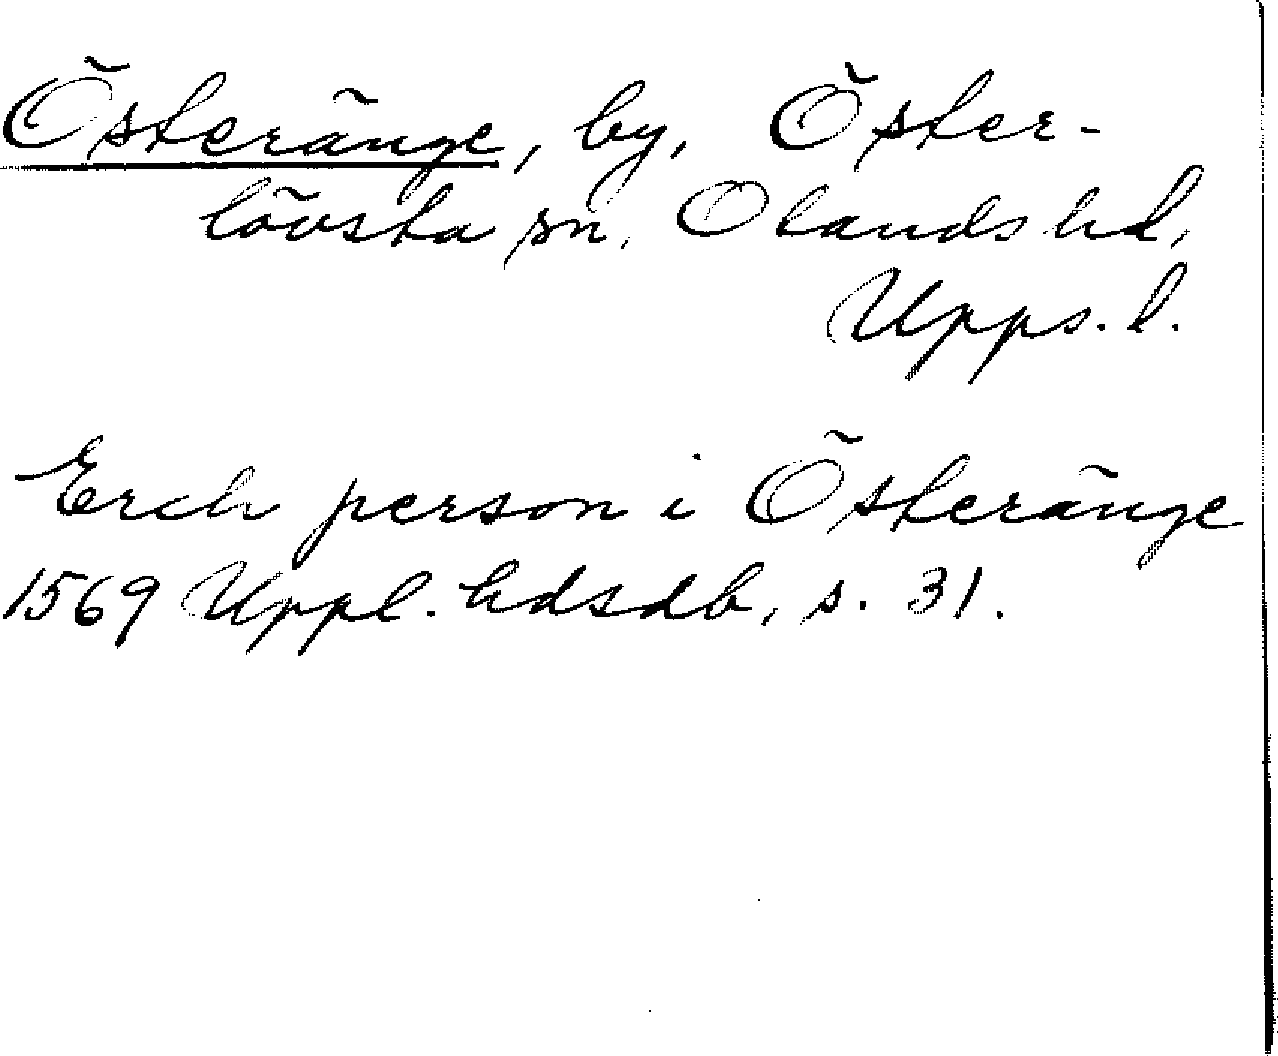 Österänge, by, Öster-
lövsta sn, Olands hd,
Upps. l.
Erch person i Österänge
1569 Uppl. hdsdb, s. 31.